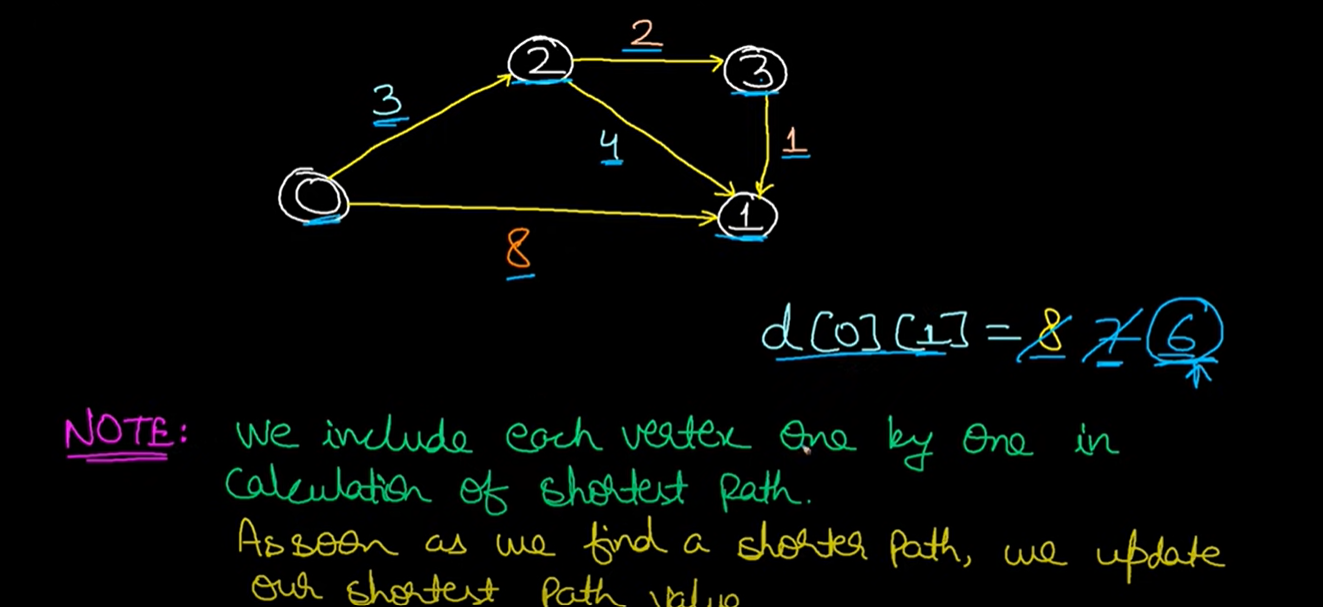 2
2
3
3
4
1
0
1
8
d[0][1] = 8 7 6
NOTE: We include each vertex one by one in
Calculation of shortest Path.
As soon as we find a shorter Path, we update
our shortest Path value